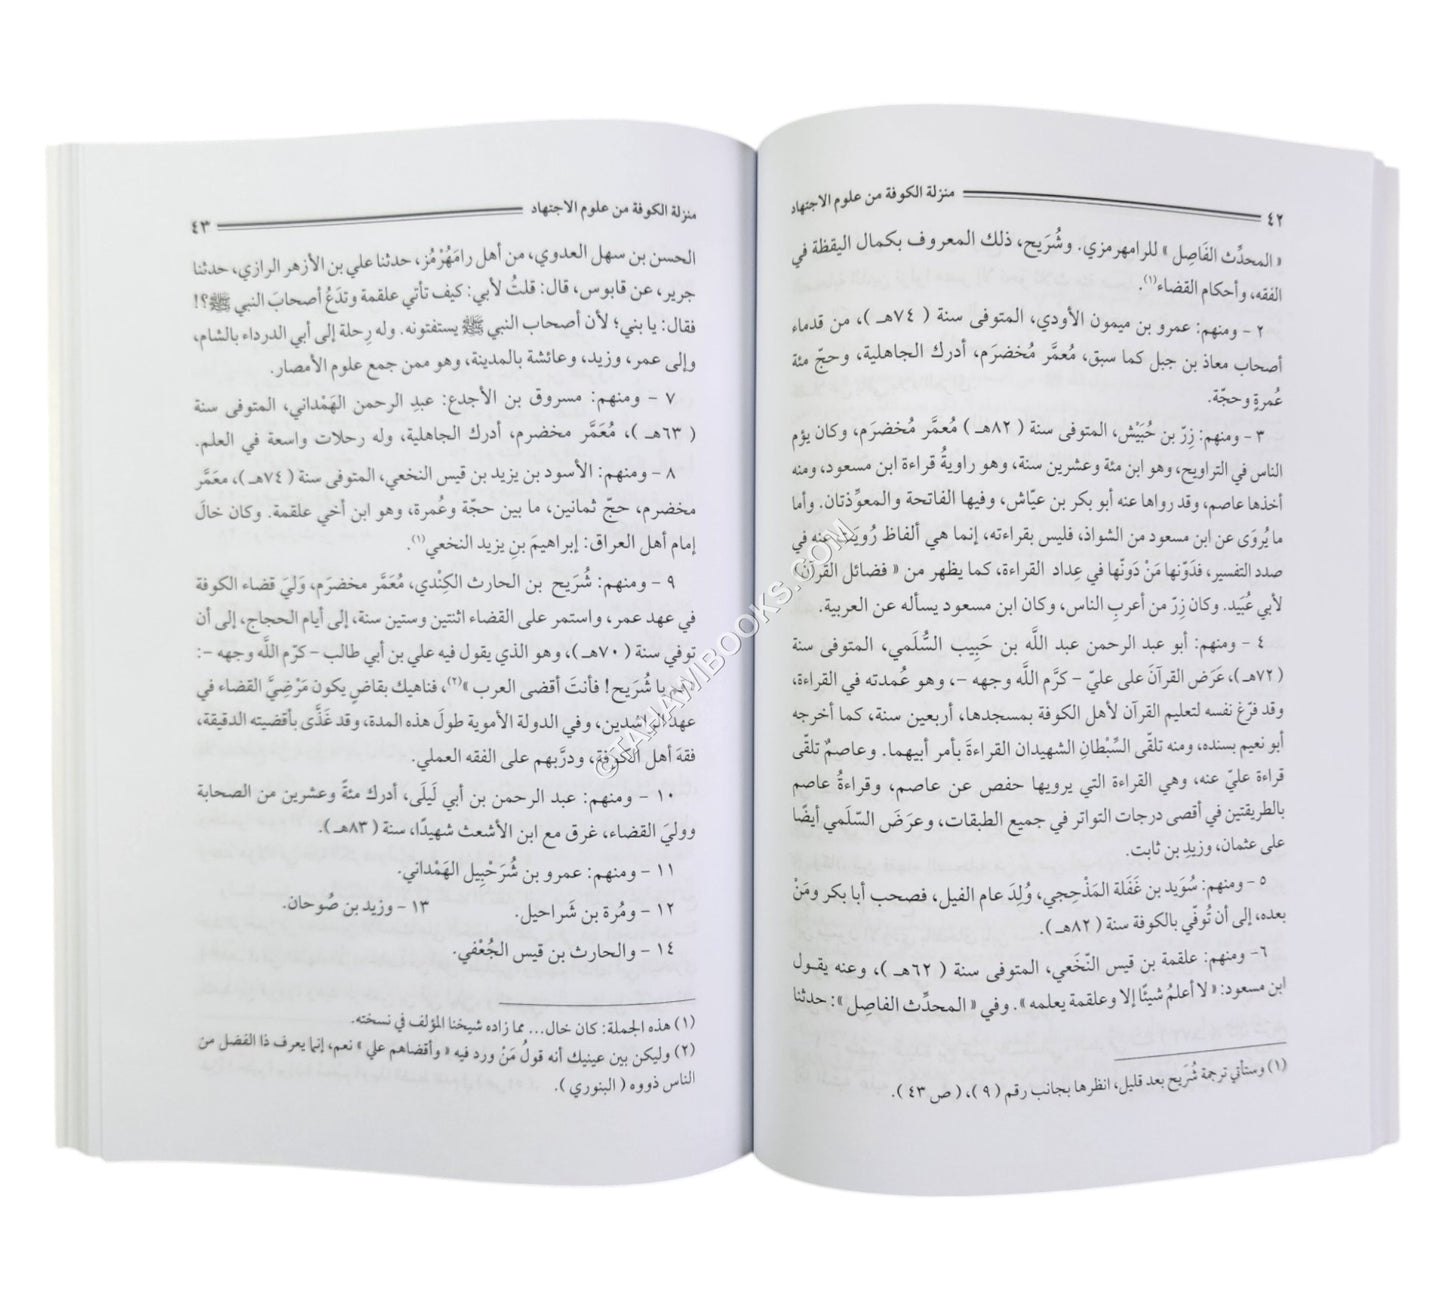 ٤٢
منزلة الكوفة من علوم الاجتهاد
« المحدِّث الفَاصِل » للرامهرمزي. وشُرَيح، ذلك المعروف بكمال اليقظة في
الفقه، وأحكام القضاء(١).
٢ - ومنهم: عمرو بن ميمون الأودي، المتوفى سنة ( ٧٤هـ )، من قدماء
أصحاب معاذ بن جبل كما سبق، مُعمَّر مُخضرَم، أدرك الجاهلية، وحجّ مئة
عُمرةٍ وحجّة.
٣ - ومنهم: زِرّ بن حُبَيْش، المتوفى سنة ( ٨٢هـ ) مُعمَّر مُخضرَم، وكان يؤم
الناس في التراويح، وهو ابن مئة وعشرين سنة، وهو راويةُ قراءة ابن مسعود، ومنه
أخذها عاصم، وقد رواها عنه أبو بكر بن عيّاش، وفيها الفاتحة والمعوِّذتان. وأما
ما يُروَى عن ابن مسعود من الشواذ، فليس بقراءته، إنما هي ألفاظ رُويَت عنه في
صدد التفسير، فدَوّنها مَنْ دَونّها في عِداد القراءة، كما يظهر من « فضائل القرآن)
لأبي عُبَيد. وكان زِرّ من أعربِ الناس، وكان ابن مسعود يسأله عن العربية.
٤ - ومنهم: أبو عبد الرحمن عبد اللَّه بن حَبِيب السُّلَمي، المتوفى سنة
( ٧٢هـ)، عَرَض القرآنَ على عليّ – كرَّم اللَّه وجهه –، وهو عُمدته في القراءة،
وقد فرّغ نفسه لتعليم القرآن لأهل الكوفة بمسجدها، أربعين سنة، كما أخرجه
أبو نعيم بسنده، ومنه تلقّى السِّبْطانِ الشهيدان القراءةَ بأمر أبيهما. وعاصمٌ تلقّى
قراءة عليّ عنه، وهي القراءة التي يرويها حفص عن عاصم، وقراءةُ عاصم
بالطريقتين في أقصى درجات التواتر في جميع الطبقات، وعرَضَ السّلَمي أيضًا
على عثمان، وزيدِ بن ثابت.
٥ - ومنهم: سُوَيد بن غَفَلة المَذْحِجي، وُلِدَ عام الفيل، فصحب أبا بكر ومَنْ
بعده، إلى أن تُوفّي بالكوفة سنة ( ٨٢هـ ).
٦- ومنهم: علقمة بن قيس النّخَعي، المتوفى سنة ( ٦٢هـ )، وعنه يقـول
ابن مسعود: « لا أعلمُ شيئًا إلا وعلقمة يعلمه ». وفي « المحدِّث الفاصِل »: حدثنا
(١) وستأتي ترجمة شُرَيح بعد قليل، انظرها بجانب رقم ( ٩ )، ( ص ٤٣ ).
منزلة الكوفة من علوم الاجتهاد
٤٣
الحسن بن سهل العدوي، من أهل رامَهُرْمُز، حدثنا علي بن الأزهر الرازي، حدثنا
جرير، عن قابوس، قال: قلتُ لأبي: كيف تأتي علقمة وتدَعُ أصحابَ النبي ﷺ؟!
فقال: يا بني؛ لأن أصحاب النبي ﷺ يستفتونه. وله رِحلة إلى أبي الدرداء بالشام،
وإلى عمر، وزيد، وعائشة بالمدينة، وهو ممن جمع علوم الأمصار.
٧ - ومنهم: مسروق بن الأجدع: عبدِ الرحمن الهَمْداني، المتوفى سنة
( ٦٣هـ )، مُعَمَّر مخضرم، أدرك الجاهلية، وله رحلات واسعة في العلم.
٨ - ومنهم: الأسود بن يزيد بن قيس النخعي، المتوفى سنة ( ٧٤هـ )، معَمَّر
مخضرم، حجّ ثمانين، ما بين حجّة وعُمرة، وهو ابن أخي علقمة. وكان خالَ
إمام أهل العراق: إبراهيمَ بنِ يزيد النخعي(١).
٩ - ومنهم: شُرَيح بن الحارث الكِنْدي، مُعَمَّر مخضرَم، وَليَ قضاء الكوفة
في عهد عمر، واستمر على القضاء اثنتين وستين سنة، إلى أيام الحجاج، إلى أن
توفي سنة ( ٧٠هـ )، وهو الذي يقول فيه علي بن أبي طالب – كرّم اللَّه وجهه –:
يا شُرَيح! فأنتَ أقضى العرب »(٢)، فناهيك بقاضٍ يكون مَرْضِيَّ القضاء في
عهد الراشدين، وفي الدولة الأموية طولَ هذه المدة، وقد غَذَّى بأقضيته الدقيقة،
فقهَ أهل الكوفة، ودرَّبهم على الفقه العملي.
١٠ - ومنهم: عبد الرحمن بن أبي لَيلَى، أدرك مئةً وعشرين من الصحابة
ووليَ القضاء، غرق مع ابن الأشعث شهيدًا، سنة ( ٨٣هـ ).
١١ - ومنهم: عمرو بن شُرَحْبِيل الهَمْداني.
١٢ - ومُرة بن شَراحيل. ١٣ - وزيد بن صُوحان.
١٤ - والحارث بن قيس الجُعْفي.
(١) هذه الجملة: كان خال... مما زاده شيخنا المؤلف في نسخته.
(٢) وليكن بين عينيك أنه قولُ مَنْ ورد فيه « وأقضاهم علي » نعم، إنما يعرف ذا الفضل من
الناس ذووه ( البنوري ).
©TAHAWIBOOKS.COM